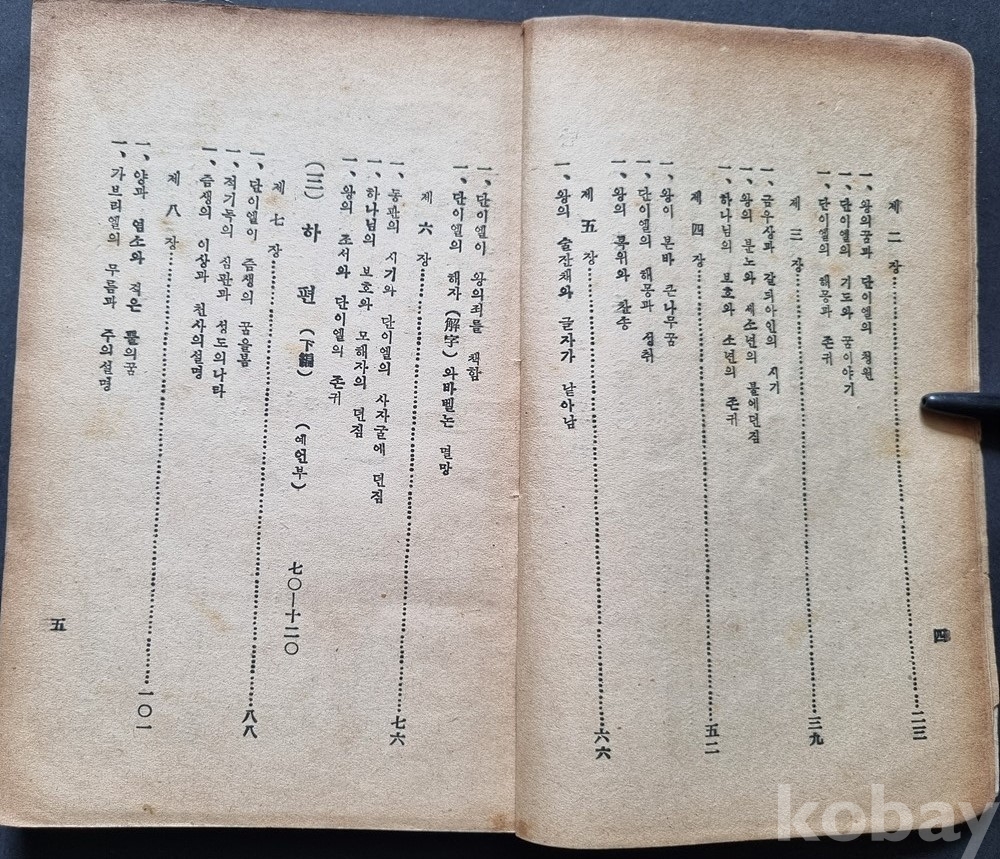 제 二 장 二三
一、왕의꿈과 단이엘의 청원
一、단이엘의 기도와 꿈이야기
一、단이엘의 해몽과 존귀
제 三 장 三九
一、금우상과 갈대아인의 시기
一、왕의 분노와 세소년의 불에던짐
一、하나님의 보호와 소년의 존귀
제 四 장 五二
一、왕이 본바 큰나무꿈
一、단이엘의 해몽과 성취
一、왕의 복위와 찬송
제 五 장 六六
一、왕의 술잔채와 글자가 낱아남
四
一、단이엘이 왕의죄를 책함
一、단이엘의 해자 (解字) 와바벨논 멸망
제 六 장 七六
一、동관의 시기와 단이엘의 사자굴에 던짐
一、하나님의 보호와 모해자의 던짐
一、왕의 조서와 단이엘의 존귀
(三) 하 편 (下編) (예언부) 七〇—十二〇
제 七 장 八八
一、단이엘이 즘생의 꿈을봄
一、적기독의 심판과 성도의나타
一、즘생의 이상과 천사의설명
제 八 장 一〇一
一、양과 염소와 적은 뿔의꿈
一、가브리엘의 무름과 주의설명
五
kobay